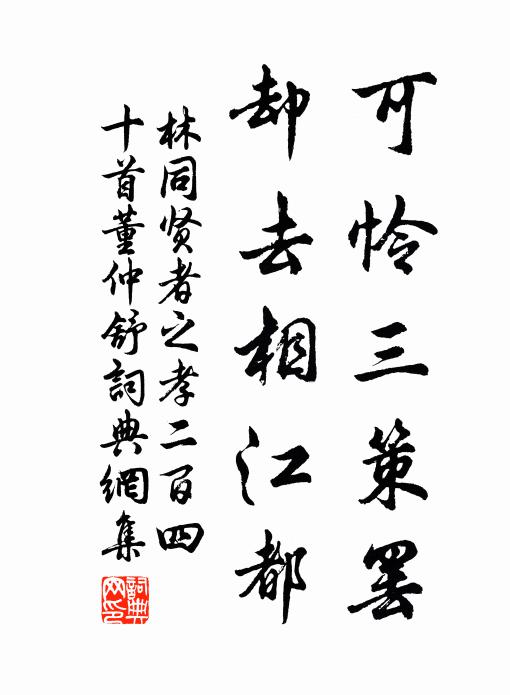 可怜三策罢
却去相江都
林同贤者之孝二百四
十首董仲舒詞典網集